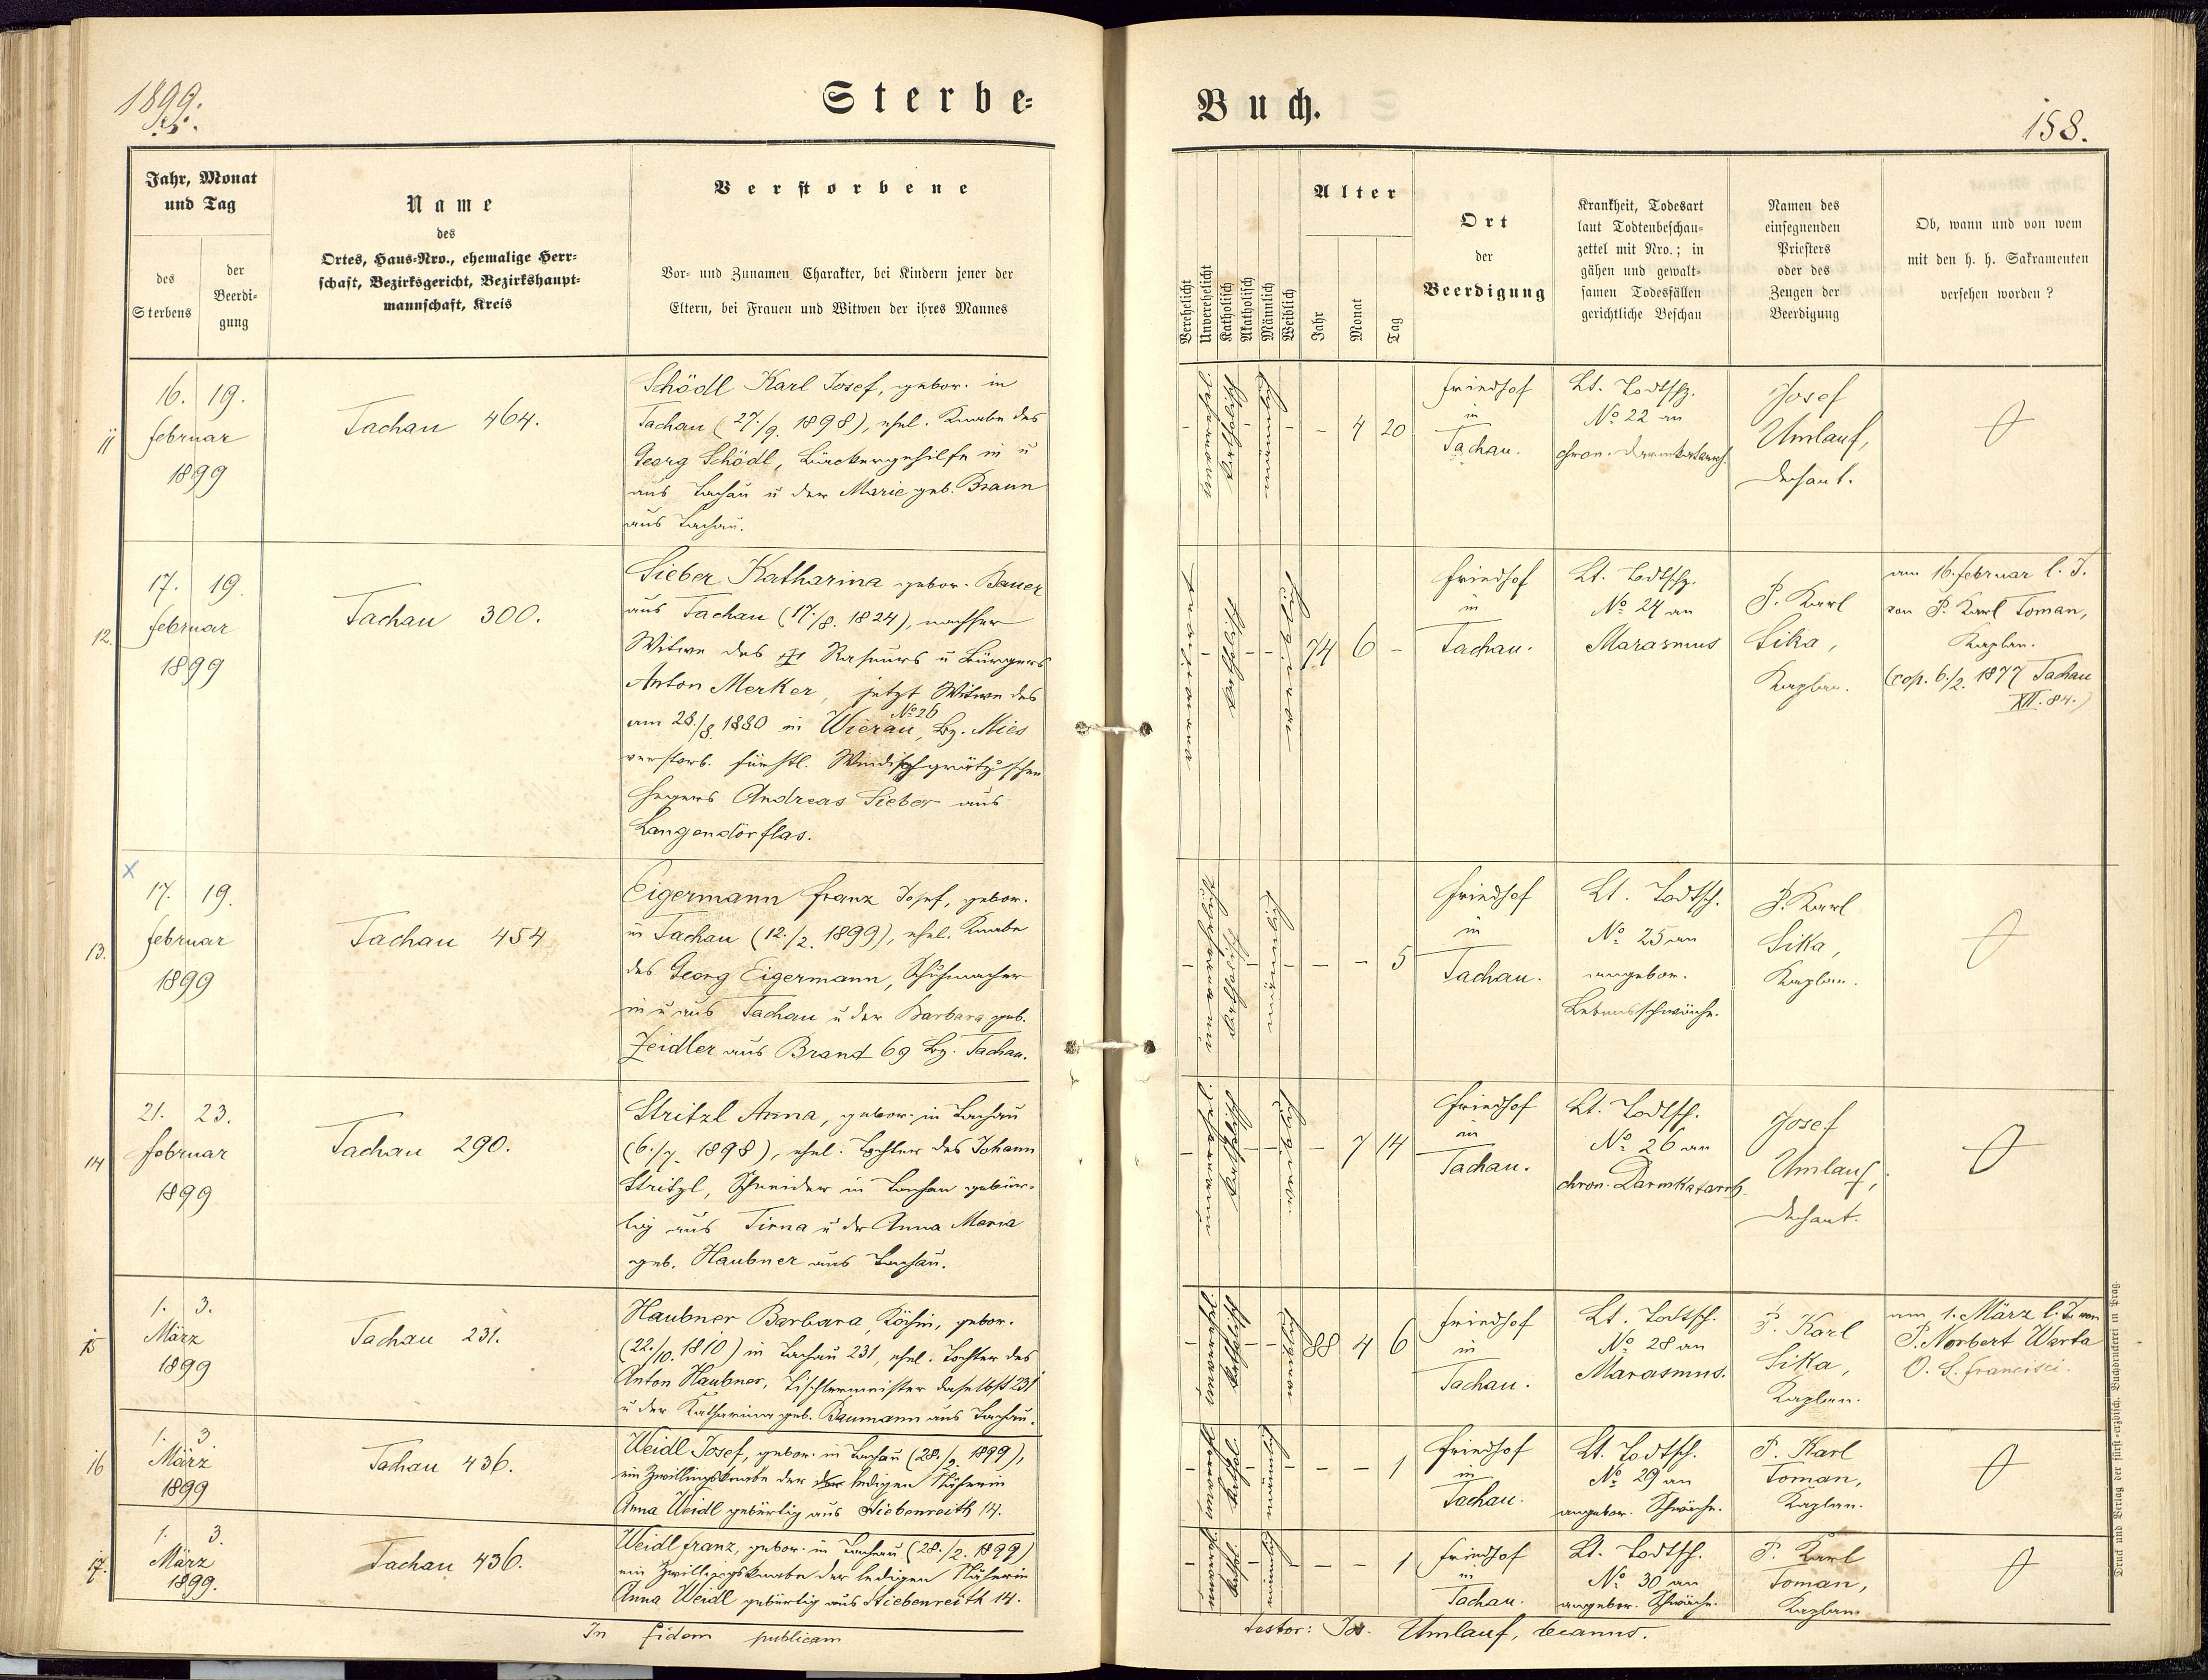 1899.
Sterbe-
Buch.
158.
Jahr, Monat
und Tag
des
Sterbens
der
Beerdi-
gung
Name
des
Ortes, Haus-Nro., ehemalige Herr-
schaft, Bezirksgericht, Bezirkshaupt-
mannschaft, Kreis
Verstorbene
Vor- und Zunamen Charakter, bei Kindern jener der
Eltern, bei Frauen und Witwen der ihres Mannes
Verehelicht
Unverehelicht
Katholisch
Akatholisch
Männlich
Weiblich
Alter
Jahr
Monat
Tag
Ort
der
Beerdigung
Krankheit, Todesart
laut Todtenbeschau-
zettel mit Nro.; in
gähen und gewalt-
samen Todesfällen
gerichtliche Beschau
Namen des
einsegnenden
Priesters
oder des
Zeugen der
Beerdigung
Ob, wann und von wem
mit den h. h. Sakramenten
versehen worden?
11
16. 19.
Februar
1899
Tachau 464.
Schödl Karl Josef, gebor. in
Tachau (27./9. 1898), ehel. Knabe des
Georg Schödl, Bäckergehilfe in u
aus Tachau u der Marie geb. Braun
aus Tachau.
unverehel.
katholisch
männlich
- 4 20
Friedhof
in
Tachau.
Lt. Todtschz.
No 22 an
chron. Darmkatarrh.
Josef
Umlauf,
Dechant.
12.
17. 19.
Februar
1899
Tachau 300.
Sieber Katharina gebor. Bauer
aus Tachau (17./8. 1824),
Witwe des u Bürgers
Anton Merker, jetzt Witwe des
No 26
am 28./8. 1880 in Wierau, Bz. Mies
verstorb. fürstl. Windischgrätz'schen
Hegers Andreas Sieber aus
Langendörflas.
katholisch
weiblich
74 6 -
Friedhof
in
Tachau.
Lt. Todtschz.
No 24 an
Marasmus
P. Karl
Sika,
Kaplan.
am 16. Februar l. J.
von P. Karl Toman,
Kaplan.
(cop. 6./2. 1877 Tachau
XII. 84.)
13.
17. 19.
Februar
1899
Tachau 454
Eigermann Franz Josef, gebor.
in Tachau (12./2. 1899), ehel. Knabe
des Georg Eigermann, Schuhmacher
in u aus Tachau u der Barbara geb.
Zeidler aus Brand 69 Bz. Tachau.
unverehelicht
katholisch
männlich
- - 5
Friedhof
in
Tachau.
Lt. Todtsch.
No 25 an
angebor.
Lebensschwäche.
P. Karl
Sika,
Kaplan.
14
21. 23.
Februar
1899
Tachau 290.
Stritzl Anna, gebor. in Tachau
(6./7. 1898), ehel. Tochter des Johann
Stritzl, Schneider in Tachau gebür-
tig aus Tirna u der Anna Maria
geb. Haubner aus Tachau.
unverehel.
katholisch
weiblich
- 7 14
Friedhof
in
Tachau.
Lt. Todtsch.
No 26 an
chron. Darmkatarrh.
Josef
Umlauf,
Dechant.
15
1. 3.
März
1899
Tachau 231.
Haubner Barbara, Köchin, gebor.
(22./10. 1810) in Tachau 231, ehel. Tochter des
Anton Haubner, Tischlermeister daselbst 231
u der Katharina geb. Baumann aus Tachau.
unverehel.
katholisch
weiblich
88 4 6
Friedhof
in
Tachau.
Lt. Todtsch.
No 28 an
Marasmus.
P. Karl
Sika,
Kaplan.
am 1. März l. J. von
P. Norbert Warta
O. S. Francisci.
16
1. 3
März
1899
Tachau 436.
Weidl Josef, gebor. in Tachau (28./2. 1899),
ein Zwillingsknabe der ledigen Näherin
Anna Weidl gebürtig aus Hiebenreith 14.
unverehel.
kathol.
männlich
- - 1
Friedhof
in
Tachau.
Lt. Todtsch.
No 29 an
angebor. Schwäche.
P. Karl
Toman,
Kaplan.
17.
1. 3.
März
1899.
Tachau 436.
Weidl Franz, gebor. in Tachau (28./2. 1899)
ein Zwillingsknabe der ledigen Näherin
Anna Weidl gebürtig aus Stiebenreith 14.
unverehel.
kathol.
männlich
- - 1
Friedhof
in
Tachau.
Lt. Todtsch.
No 30 an
angebor. Schwäche.
P. Karl
Toman,
Kaplan.
In fidem publicam
testor: Jos. Umlauf, decanus.
Druck und Verlag der fürst-erzbisch. Buchdruckerei in Prag.